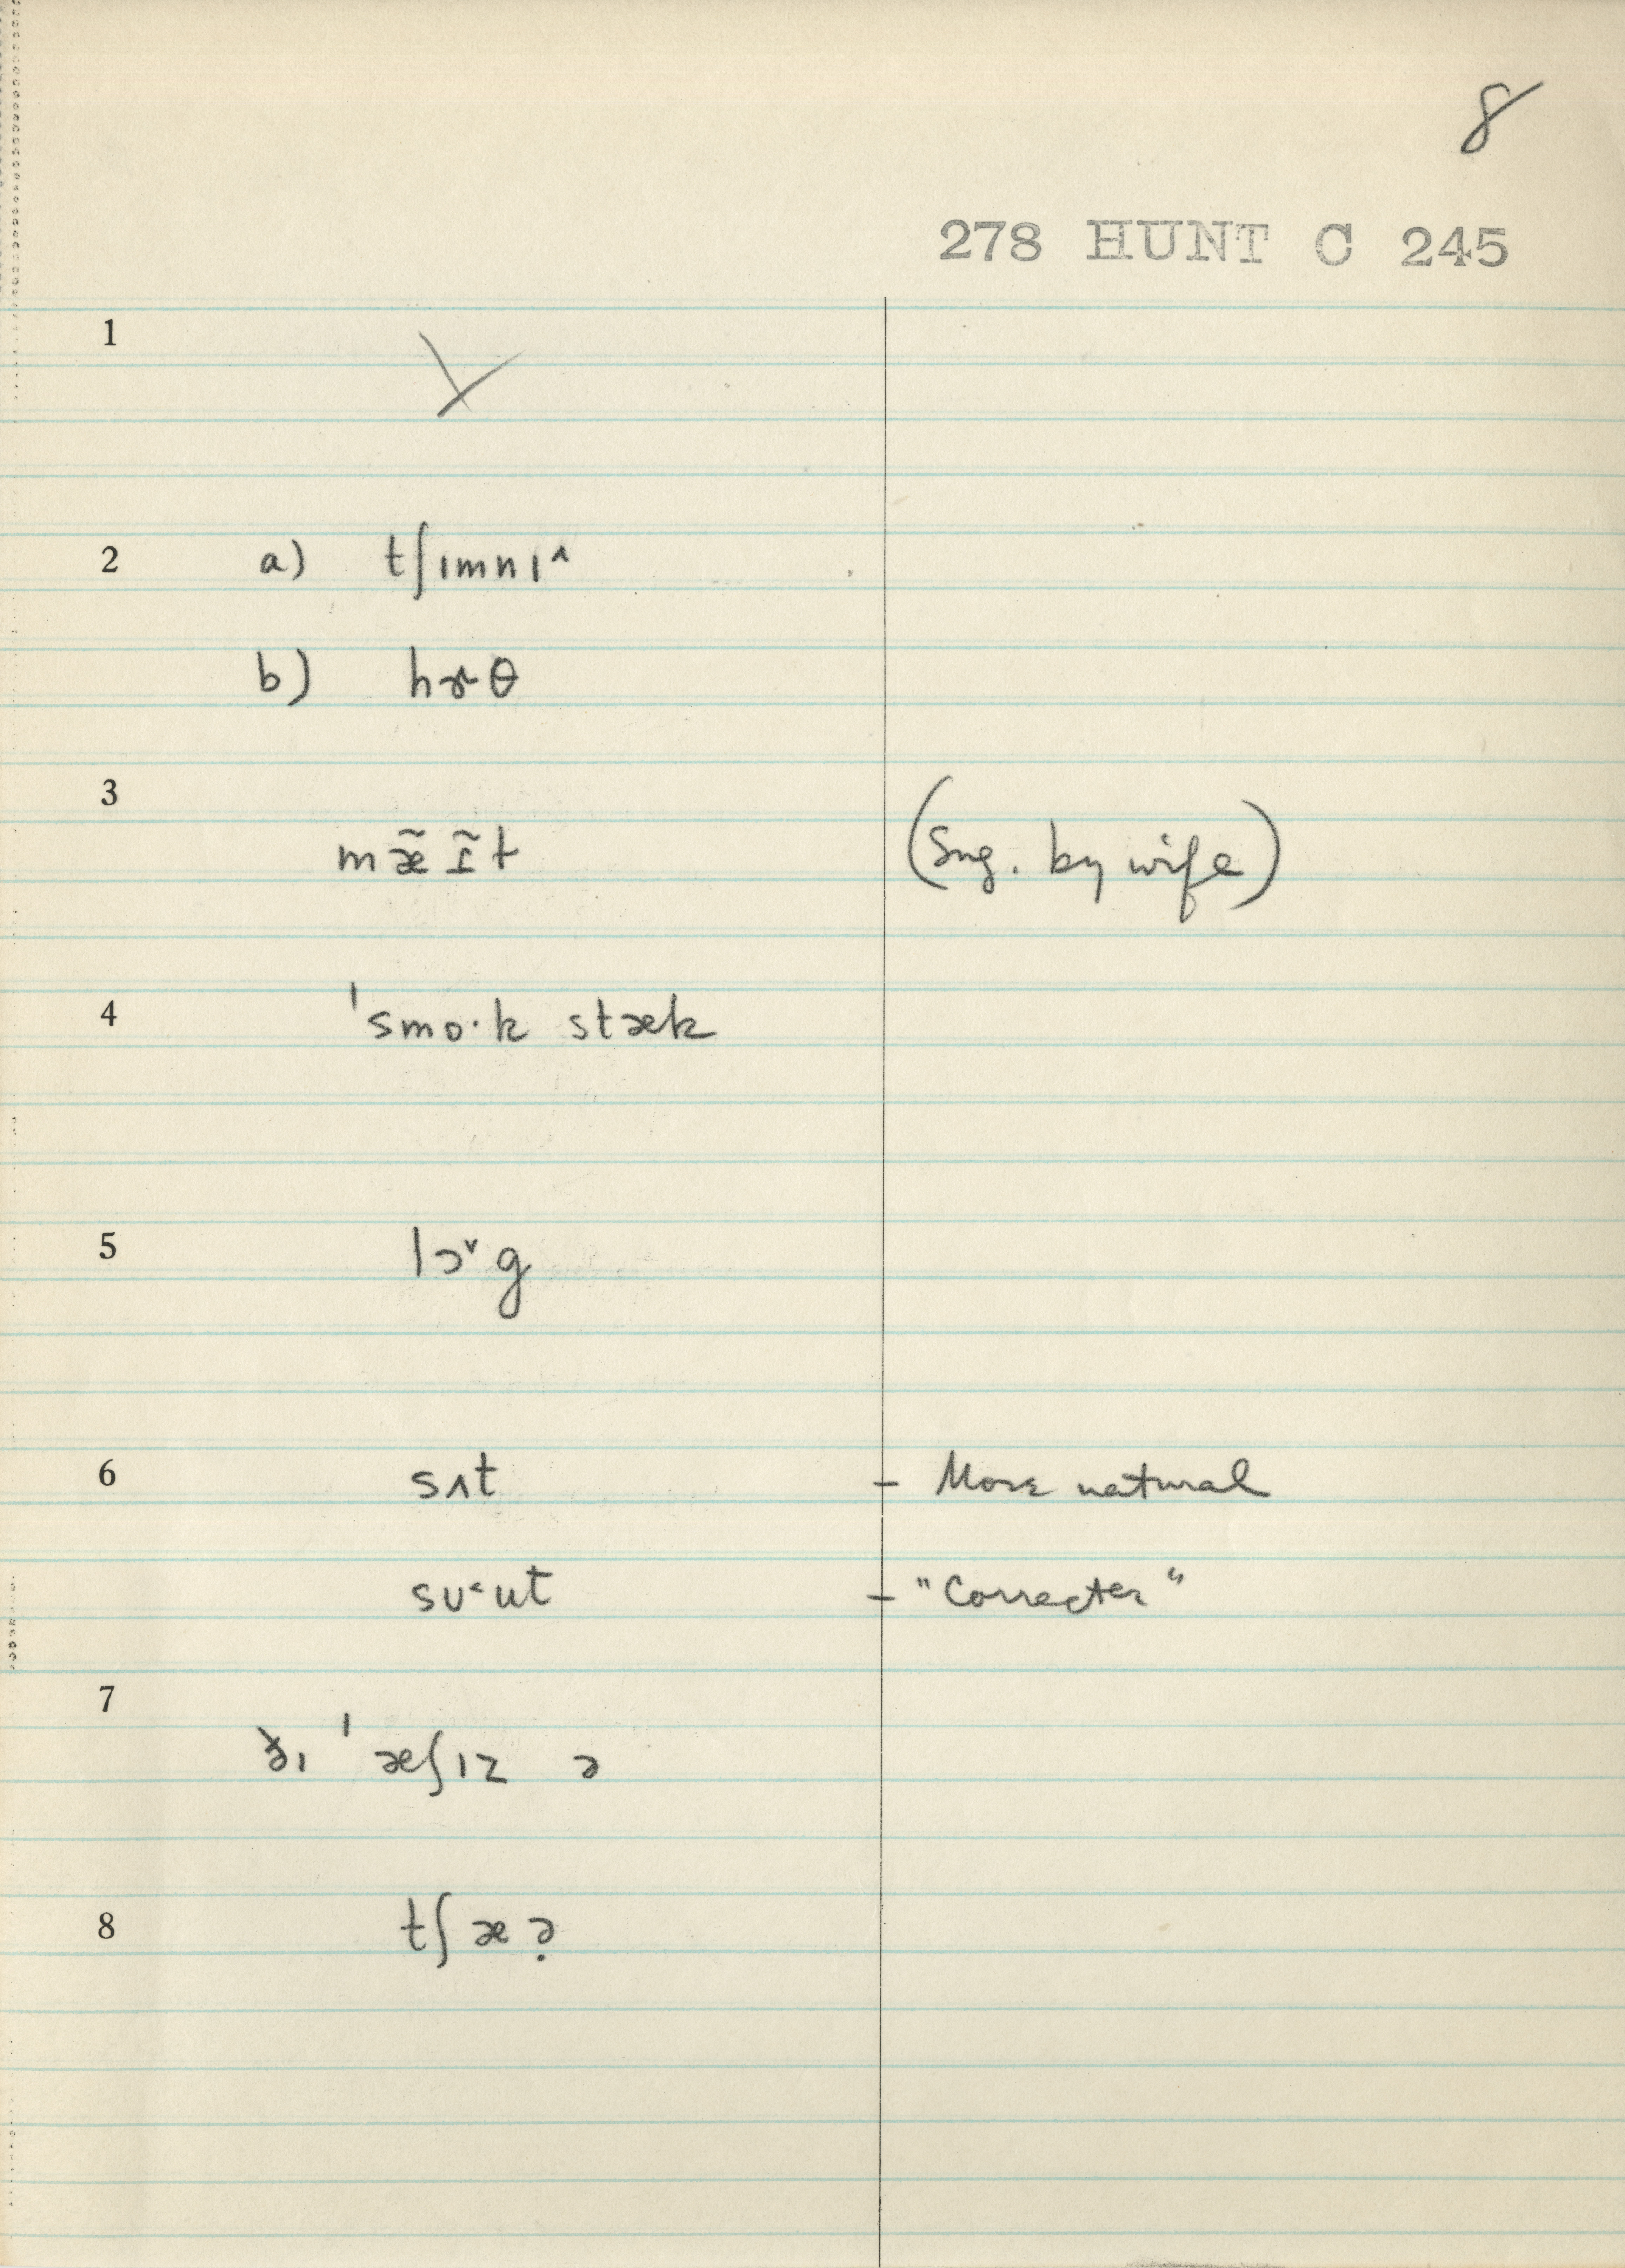 8
278 HUNT C 245
1
2 a) tʃɪmnɪ˄
b) hɚθ
3
mæ̃ ɪ̃t (Sug. by wife)
4 ˈsmo·k stæk
5 lɔ˅g
6 sʌt – More natural
sʊ˂ut – "Correcter"
7
ðɪ ˈæʃɪz ə
8 tʃæə̣